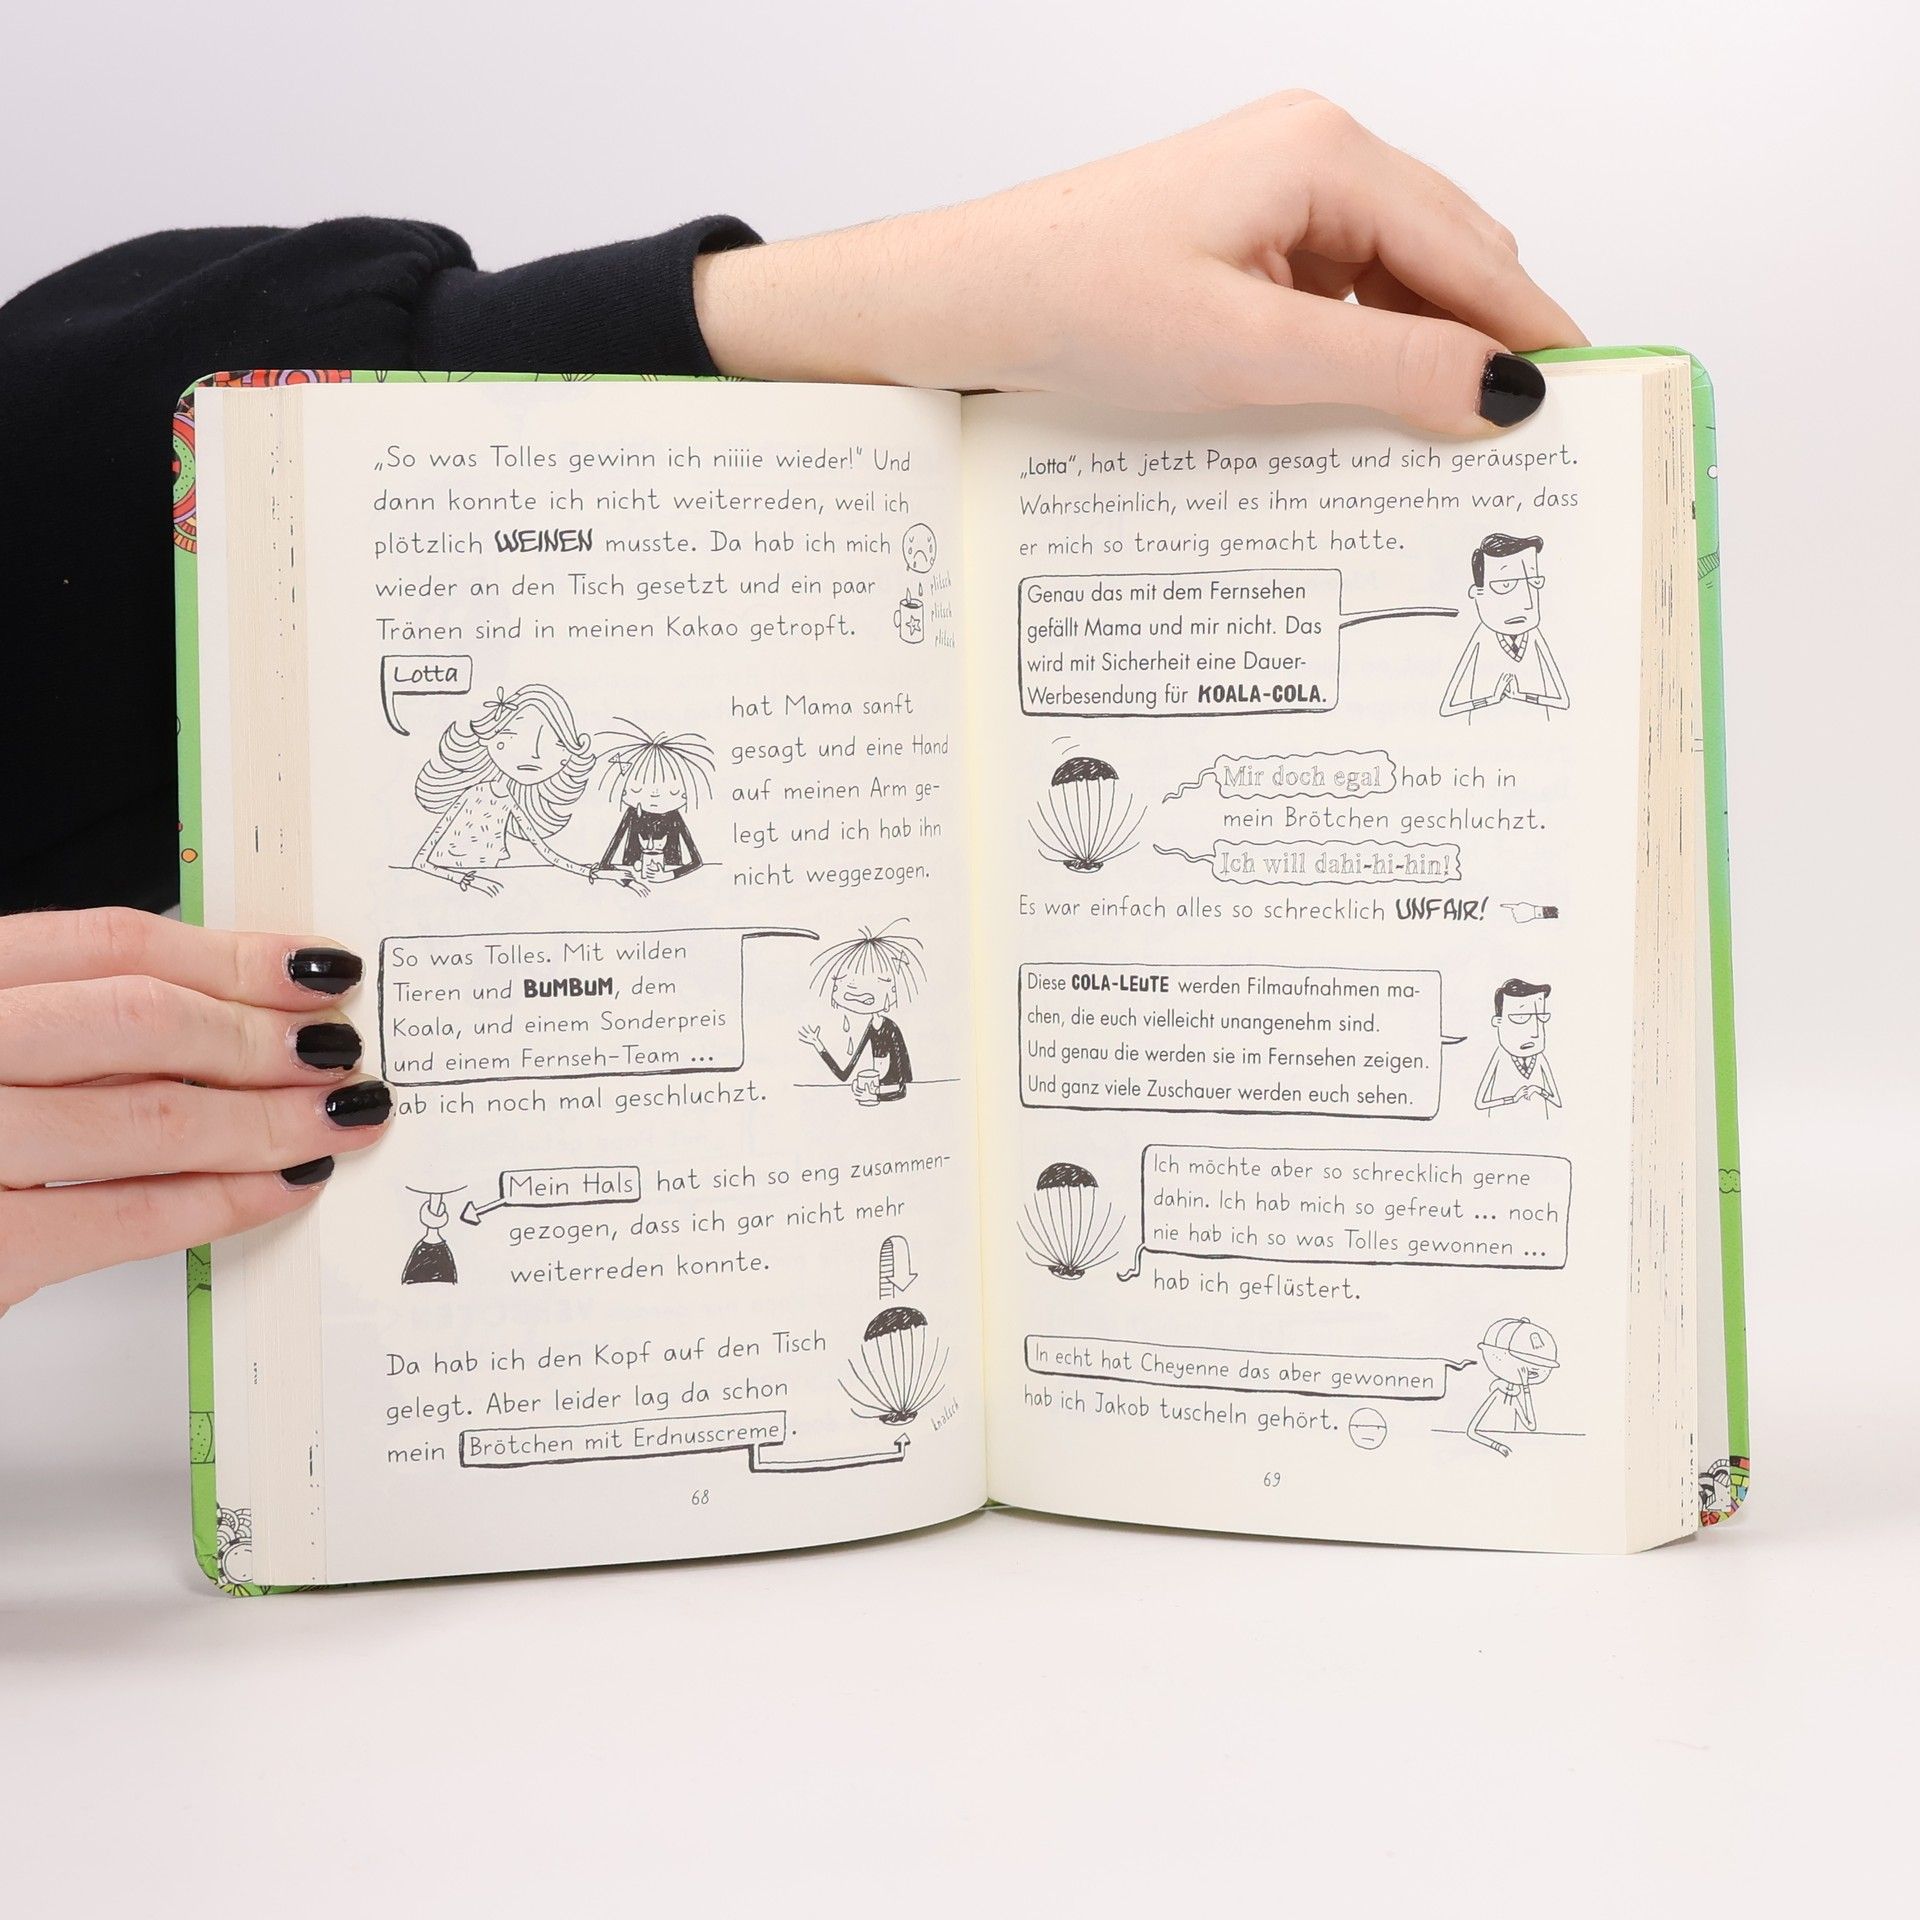 „So was Tolles gewinn ich niiiie wieder!" Und
dann konnte ich nicht weiterreden, weil ich
plötzlich WEINEN musste. Da hab ich mich
wieder an den Tisch gesetzt und ein paar
Tränen sind in meinen Kakao getropft.
plitsch
plitsch
plitsch
Lotta
hat Mama sanft
gesagt und eine Hand
auf meinen Arm ge-
legt und ich hab ihn
nicht weggezogen.
So was Tolles. Mit wilden
Tieren und BUMBUM, dem
Koala, und einem Sonderpreis
und einem Fernseh-Team ...
ab ich noch mal geschluchzt.
Mein Hals hat sich so eng zusammen-
gezogen, dass ich gar nicht mehr
weiterreden konnte.
Da hab ich den Kopf auf den Tisch
gelegt. Aber leider lag da schon
mein Brötchen mit Erdnusscreme.
knatsch
68
„Lotta", hat jetzt Papa gesagt und sich geräuspert.
Wahrscheinlich, weil es ihm unangenehm war, dass
er mich so traurig gemacht hatte.
Genau das mit dem Fernsehen
gefällt Mama und mir nicht. Das
wird mit Sicherheit eine Dauer-
Werbesendung für KOALA-COLA.
Mir doch egal hab ich in
mein Brötchen geschluchzt.
Ich will dahi-hi-hin!
Es war einfach alles so schrecklich UNFAIR!
Diese COLA-LEUTE werden Filmaufnahmen ma-
chen, die euch vielleicht unangenehm sind.
Und genau die werden sie im Fernsehen zeigen.
Und ganz viele Zuschauer werden euch sehen.
Ich möchte aber so schrecklich gerne
dahin. Ich hab mich so gefreut ... noch
nie hab ich so was Tolles gewonnen ...
hab ich geflüstert.
In echt hat Cheyenne das aber gewonnen
hab ich Jakob tuscheln gehört.
69